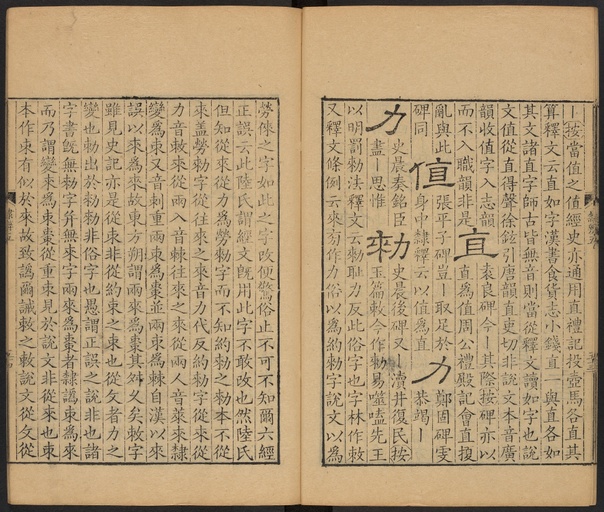 丨按當值之值經史亦通用直禮記投壺馬各直其
算釋文云直如字漢書食貨志小錢直一與直各如
其文諸直字師古皆無音則當從釋文讀如字也說
文值從直得聲徐鉉引唐韻直吏切非說文本音廣
韻收值字入志韻
而不入職韻非是
直
袁良碑今丨其際按碑亦以
直為值周公禮殿記會直擾
亂與此
碑同
值
張平子碑豈丨取足於
身中隸釋云以值為直
力
鄭固碑雯
恭竭丨
力
史晨奏銘臣
盡丨思惟
勑
史晨後碑又丨瀆井復民按
玉篇敕今作勑易噬嗑先王
以明罰勑法釋文云勑恥力反此俗字也字林作敕
又釋文條例云來旁作力俗以為約勑字說文以為
勞倈之字如此之字改便驚俗止不可不知爾六經
正誤云此陸氏謂經文旣用此字不敢改也然陸氏
但知從來從力為勞勑字而不知約勑之勑本不從
來葢勞勑字從往來之來音力代反約勑字從來從
力音敕來從兩入音棘往來之來從兩人音萊來隸
變為束又音刺重兩束為棗並兩束為棘自漢以來
誤以來為來故東方朔謂兩來為棗其舛乆矣敕字
雖見史記亦是從束非從約束之束也從攵者力之
變也勑出於勑勑非俗字也愚謂正誤之說非也諸
字書旣無勑字幷無來字兩來為棗者隸譌束為來
而乃謂變來為束棗從重束見於說文束非從來也束
本作朿有似於來故致譌爾誡敕之敕說文從攵從